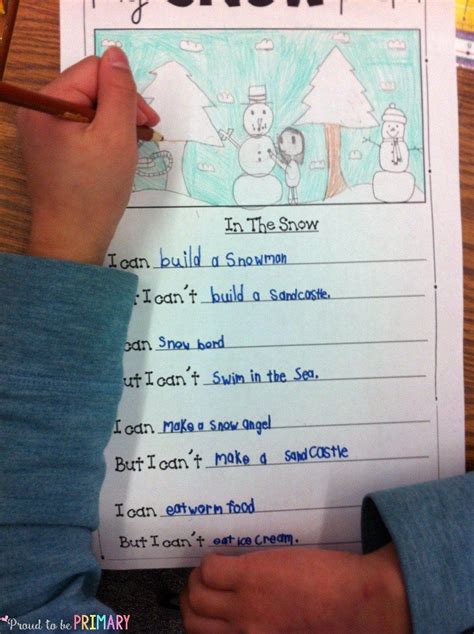 My SNOW
In The Snow
I can build a Snowman
I can't build a Sandcastle.
can Snow bord
ut I can't Swim in the Sea.
I can Make a Snow angel
But I can't Make a Sandcastle
I can eat worm food
But I can't eat ice cream.
Proud to be PRIMARY